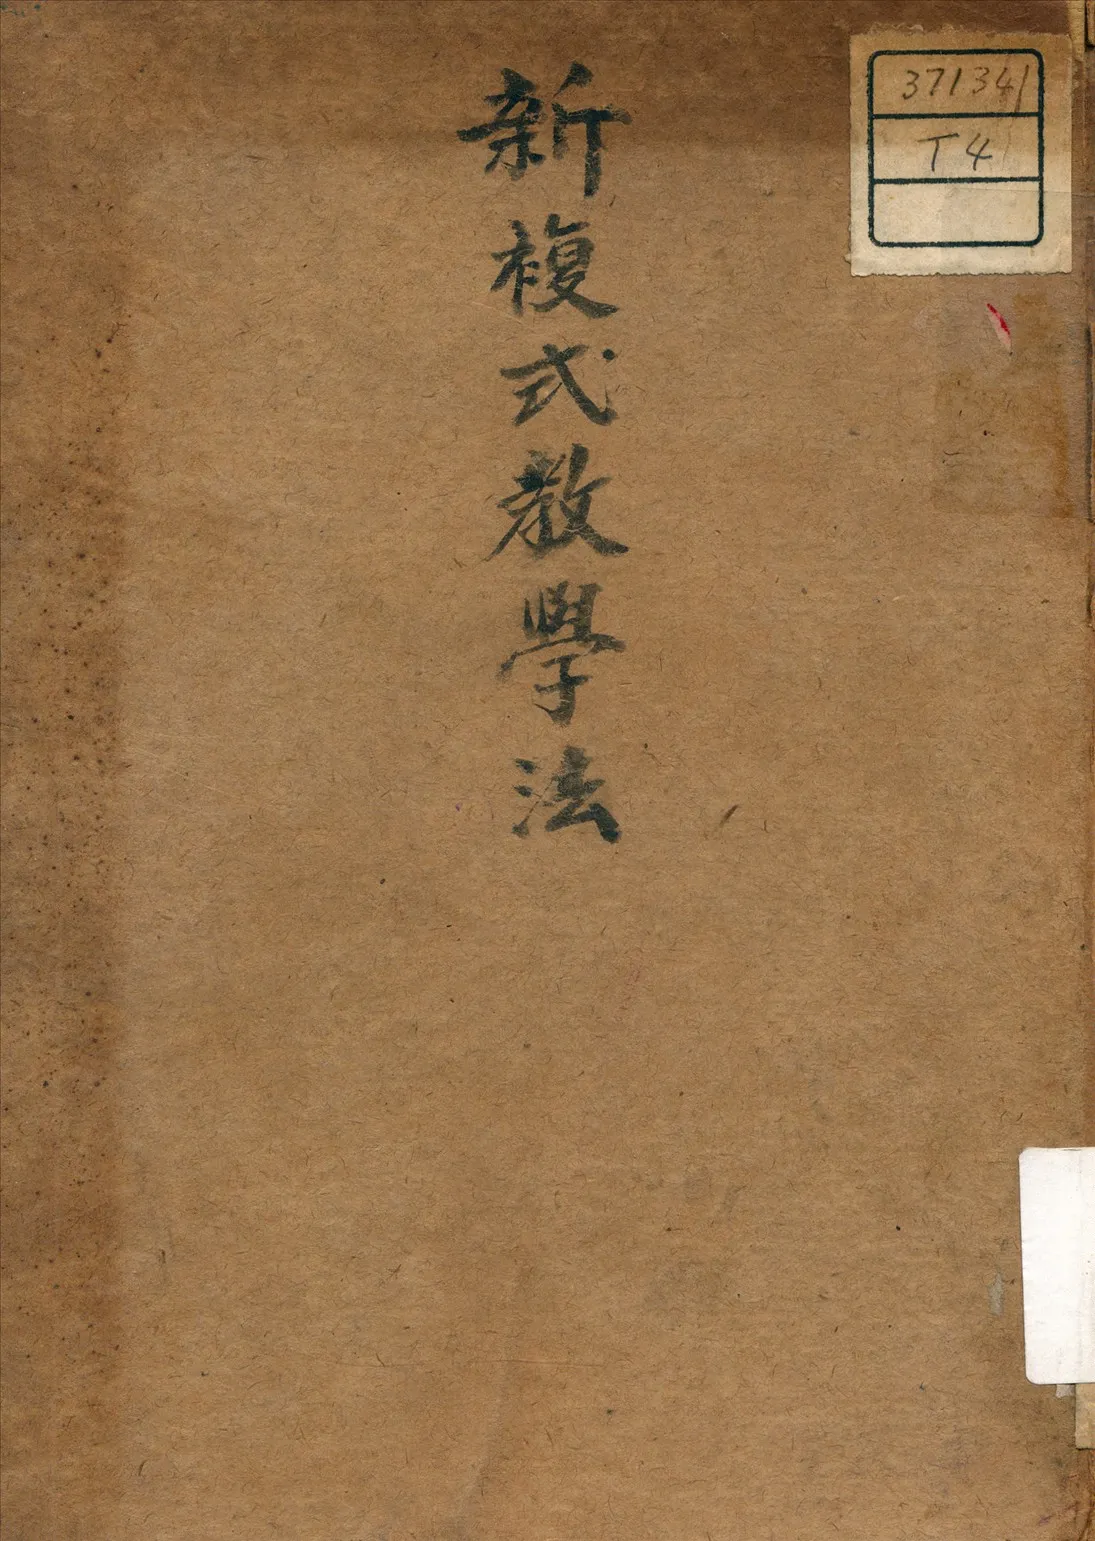 新複式教學法
371341
T4